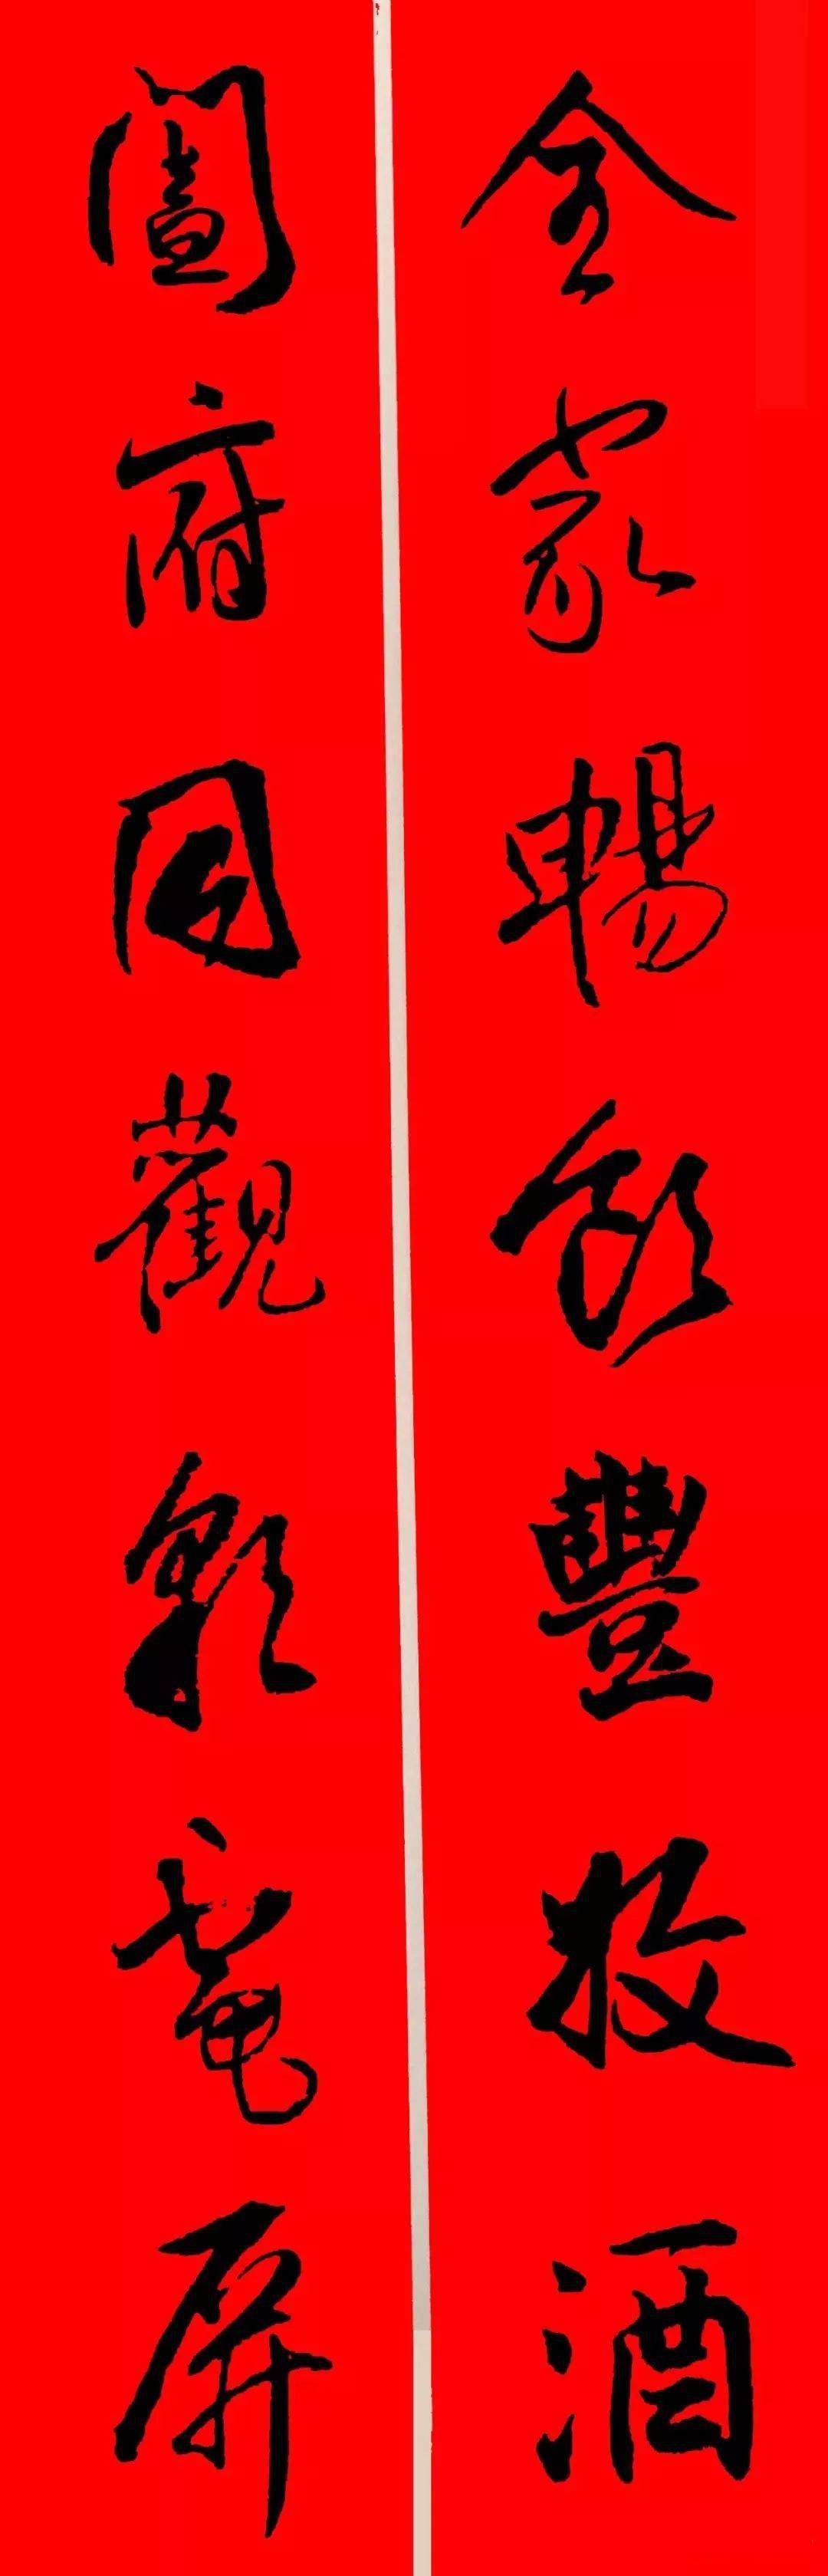 全家暢飲豐收酒
闔府同觀彩電屏